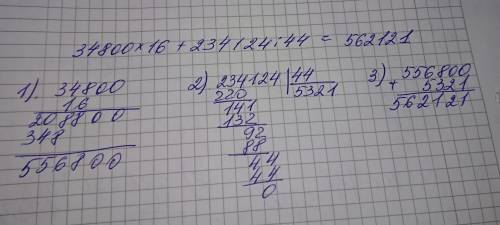 34800×16 + 234124:44 = 562121
1). 34800
16
208800
348
556800
2) 234124 | 44
220 5321
141
132
92
88
44
44
0
3) 556800
+ 5321
562121